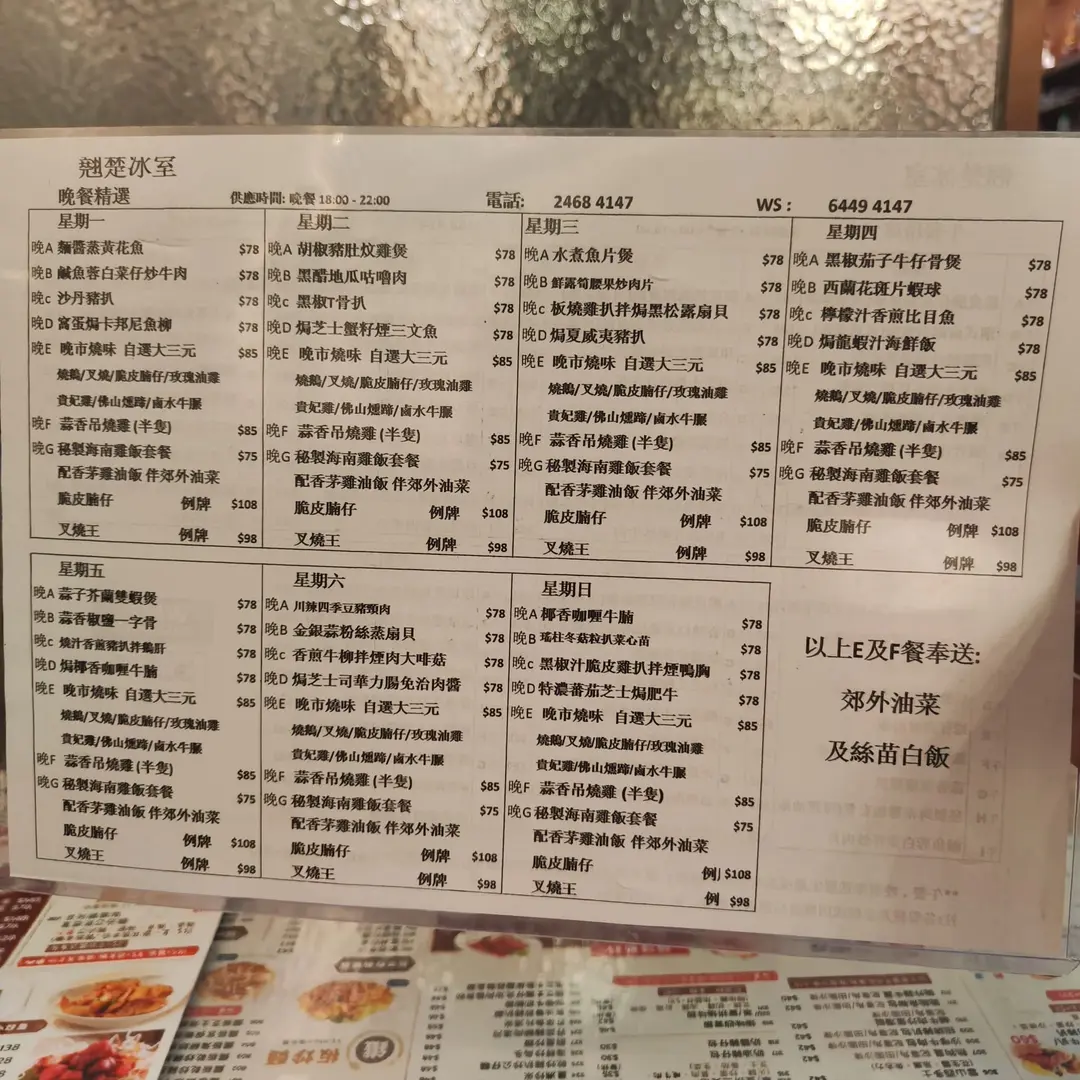 翹楚冰室
晚餐精選 供應時間: 晚餐 18:00 - 22:00 電話: 2468 4147 WS : 6449 4147
星期一
晚A 麵醬蒸黃花魚 $78
晚B 鹹魚蓉白菜仔炒牛肉 $78
晚c 沙丹豬扒 $78
晚D 窩蛋焗卡邦尼魚柳 $78
晚E 晚市燒味 自選大三元 $85
燒鵝/叉燒/脆皮腩仔/玫瑰油雞
貴妃雞/佛山燻蹄/鹵水牛𦟌
晚F 蒜香吊燒雞 (半隻) $85
晚G 秘製海南雞飯套餐 $75
配香茅雞油飯 伴郊外油菜
脆皮腩仔 例牌 $108
叉燒王 例牌 $98
星期二
晚A 胡椒豬肚炆雞煲 $78
晚B 黑醋地瓜咕嚕肉 $78
晚c 黑椒T骨扒 $78
晚D 焗芝士蟹籽煙三文魚 $78
晚E 晚市燒味 自選大三元 $85
燒鵝/叉燒/脆皮腩仔/玫瑰油雞
貴妃雞/佛山燻蹄/鹵水牛𦟌
晚F 蒜香吊燒雞 (半隻) $85
晚G 秘製海南雞飯套餐 $75
配香茅雞油飯 伴郊外油菜
脆皮腩仔 例牌 $108
叉燒王 例牌 $98
星期三
晚A 水煮魚片煲 $78
晚B 鮮露筍腰果炒肉片 $78
晚c 板燒雞扒拼焗黑松露扇貝 $78
晚D 焗夏威夷豬扒 $78
晚E 晚市燒味 自選大三元 $85
燒鵝/叉燒/脆皮腩仔/玫瑰油雞
貴妃雞/佛山燻蹄/鹵水牛𦟌
晚F 蒜香吊燒雞 (半隻) $85
晚G 秘製海南雞飯套餐 $75
配香茅雞油飯 伴郊外油菜
脆皮腩仔 例牌 $108
叉燒王 例牌 $98
星期四
晚A 黑椒茄子牛仔骨煲 $78
晚B 西蘭花斑片蝦球 $78
晚c 檸檬汁香煎比目魚 $78
晚D 焗龍蝦汁海鮮飯 $78
晚E 晚市燒味 自選大三元 $85
燒鵝/叉燒/脆皮腩仔/玫瑰油雞
貴妃雞/佛山燻蹄/鹵水牛𦟌
晚F 蒜香吊燒雞 (半隻) $85
晚G 秘製海南雞飯套餐 $75
配香茅雞油飯 伴郊外油菜
脆皮腩仔 例牌 $108
叉燒王 例牌 $98
星期五
晚A 蒜子芥蘭雙蝦煲 $78
晚B 蒜香椒鹽一字骨 $78
晚c 燒汁香煎豬扒拼鵝肝 $78
晚D 焗椰香咖喱牛腩 $78
晚E 晚市燒味 自選大三元 $85
燒鵝/叉燒/脆皮腩仔/玫瑰油雞
貴妃雞/佛山燻蹄/鹵水牛𦟌
晚F 蒜香吊燒雞 (半隻) $85
晚G 秘製海南雞飯套餐 $75
配香茅雞油飯 伴郊外油菜
脆皮腩仔 例牌 $108
叉燒王 例牌 $98
星期六
晚A 川辣四季豆豬頸肉 $78
晚B 金銀蒜粉絲蒸扇貝 $78
晚c 香煎牛柳拼煙肉大啡菇 $78
晚D 焗芝士司華力腸免治肉醬 $78
晚E 晚市燒味 自選大三元 $85
燒鵝/叉燒/脆皮腩仔/玫瑰油雞
貴妃雞/佛山燻蹄/鹵水牛𦟌
晚F 蒜香吊燒雞 (半隻) $85
晚G 秘製海南雞飯套餐 $75
配香茅雞油飯 伴郊外油菜
脆皮腩仔 例牌 $108
叉燒王 例牌 $98
星期日
晚A 椰香咖喱牛腩 $78
晚B 瑤柱冬菇粒扒菜心苗 $78
晚c 黑椒汁脆皮雞扒拼煙鴨胸 $78
晚D 特濃蕃茄芝士焗肥牛 $78
晚E 晚市燒味 自選大三元 $85
燒鵝/叉燒/脆皮腩仔/玫瑰油雞
貴妃雞/佛山燻蹄/鹵水牛𦟌
晚F 蒜香吊燒雞 (半隻) $85
晚G 秘製海南雞飯套餐 $75
配香茅雞油飯 伴郊外油菜
脆皮腩仔 例 $108
叉燒王 例 $98
以上E及F餐奉送:
郊外油菜
及絲苗白飯